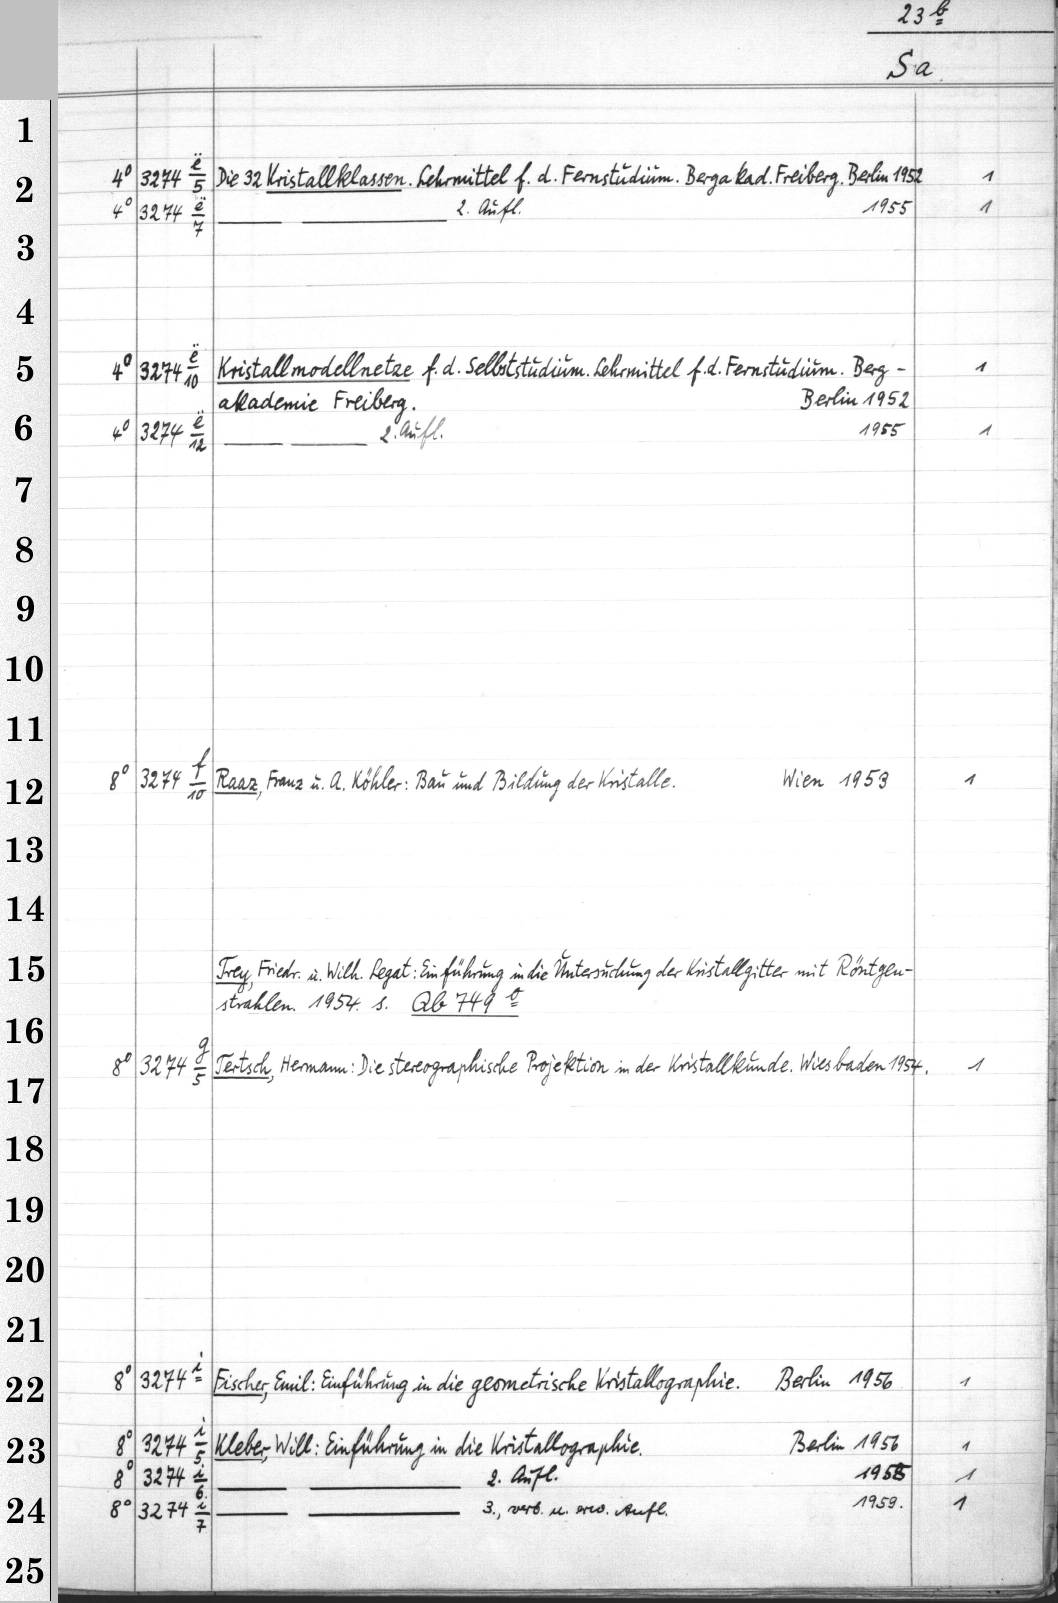 23 b
Sa
1
4° 3274 ë/5 Die 32 Kristallklassen. Lehrmittel f. d. Fernstudium. Bergakad. Freiberg. Berlin 1952 1
2
4° 3274 ë/7 2. Aufl. 1955 1
3
4
4° 3274 ë/10 Kristallmodellnetze f. d. Selbststudium. Lehrmittel f. d. Fernstudium. Berg- 1
5
akademie Freiberg. Berlin 1952
6
4° 3274 ë/12 2. Aufl. 1955 1
7
8
9
10
11
8° 3274 f/10 Raaz, Franz u. A. Köhler: Bau und Bildung der Kristalle. Wien 1953 1
12
13
14
15
Trey, Friedr. u. Wilh. Legat: Einführung in die Untersuchung der Kristallgitter mit Röntgen-
strahlen. 1954. s. Qb 749 o
16
8° 3274 g/5 Tertsch, Hermann: Die stereographische Projektion in der Kristallkunde. Wiesbaden 1954. 1
17
18
19
20
21
8° 3274 i Fischer, Emil: Einführung in die geometrische Kristallographie. Berlin 1956 1
22
8° 3274 i/5 Kleber, Will: Einführung in die Kristallographie. Berlin 1956 1
23
8° 3274 i/6 2. Aufl. 1
8° 3274 i/7 3., verb. u. erw. Aufl. 1959. 1
24
25